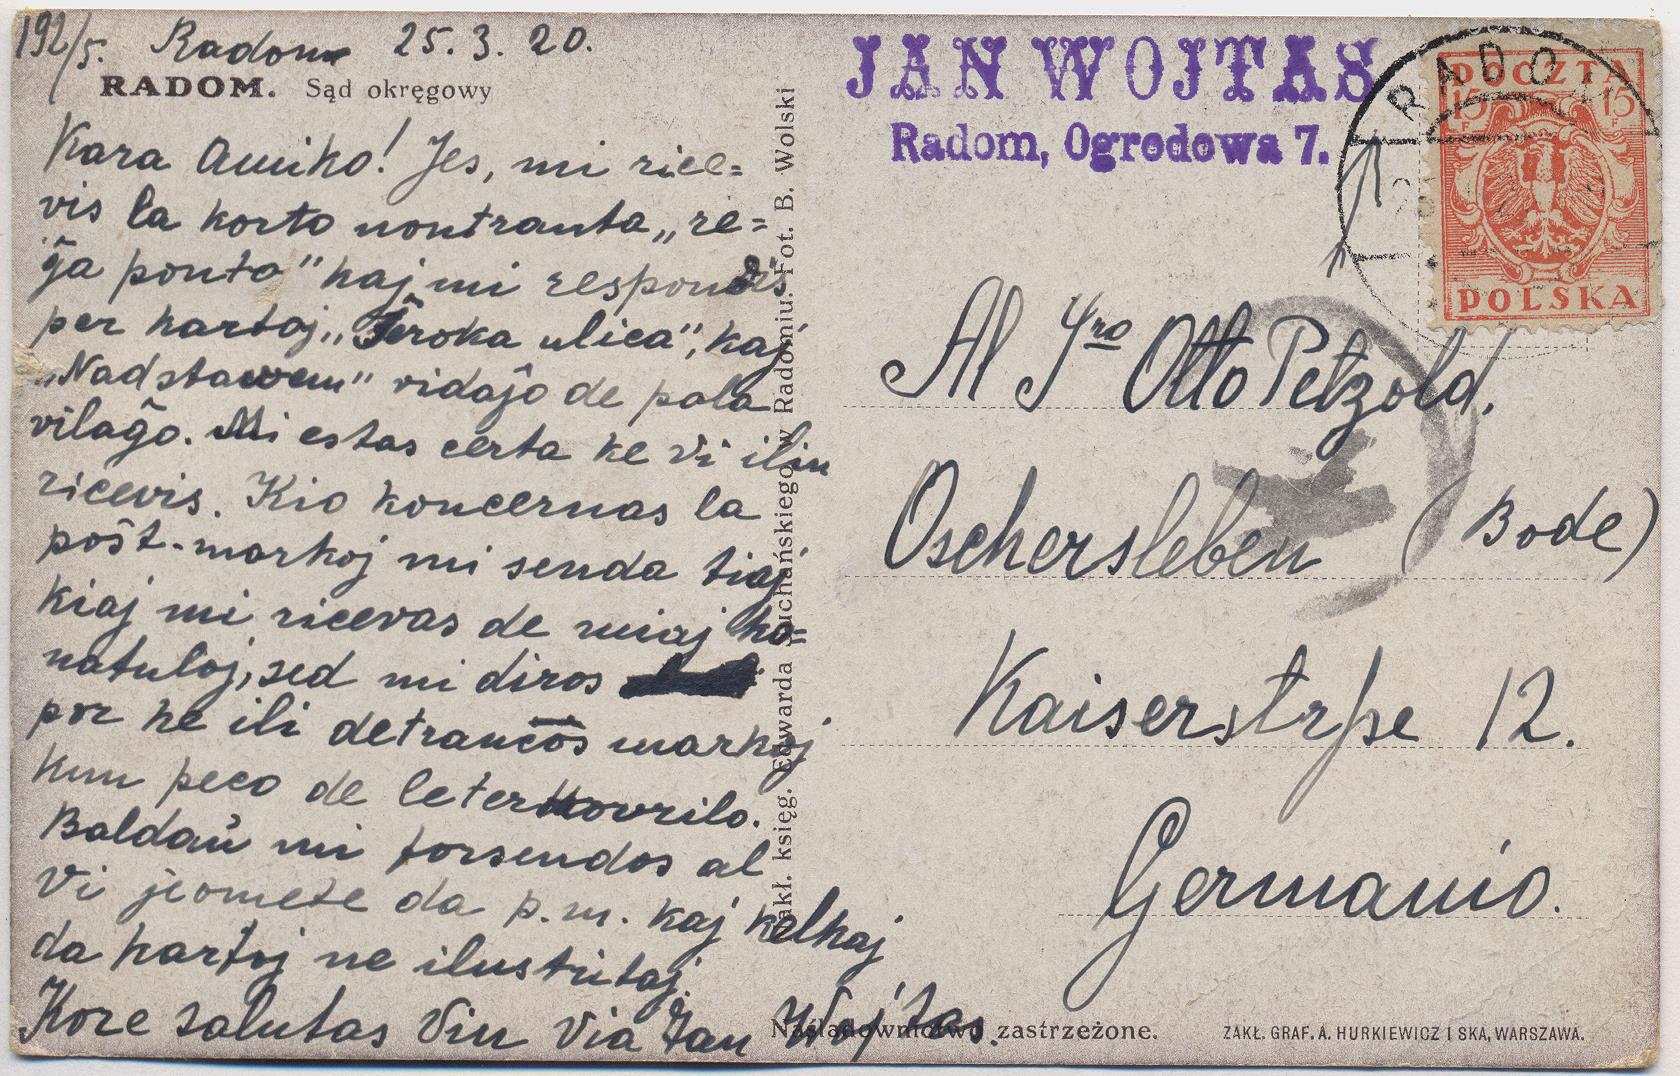 192/5. Radom 25.3.20.
RADOM. Sąd okręgowy
Kara Amiko! Jes, mi rice=
vis la karto montranta „re=
ĝa ponto" kaj mi respondis
per kartoj „Ŝeroka ulica", kaj
„Nad stawem" vidaĵo de pola
vilaĝo. Mi estas certa ke Vi ilin
ricevis. Kio koncernas la
poŝt-markoj mi senda tiaj
kiaj mi ricevas de miaj ko=
natuloj, sed mi diros
por ke ili detranĉos markoj
kun peco de leterkovrilo.
Baldaŭ mi forsendos al
Vi jeomete da p.m. kaj kelkaj
da kartoj ne ilustritaj.
Kore salutas Vin Via Jan Wojtas.
Zakł. księg. Edwarda Suchańskiego w Radomiu. Fot. B. Wolski
JAN WOJTAS
Radom, Ogrodowa 7.
RADO
POCZTA
15 F 15 F
POLSKA
Al Sro Otto Petzold.
Oschersleben (Bode)
Kaiserstrße 12.
Germanio.
Naśladownictwo zastrzeżone.
ZAKŁ. GRAF. A. HURKIEWICZ I SKA, WARSZAWA.